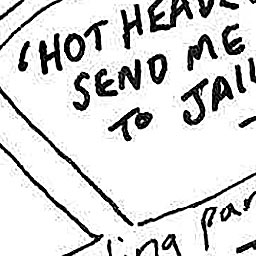 'HOT HEAVE
SEND ME
TO JAIL
ling par